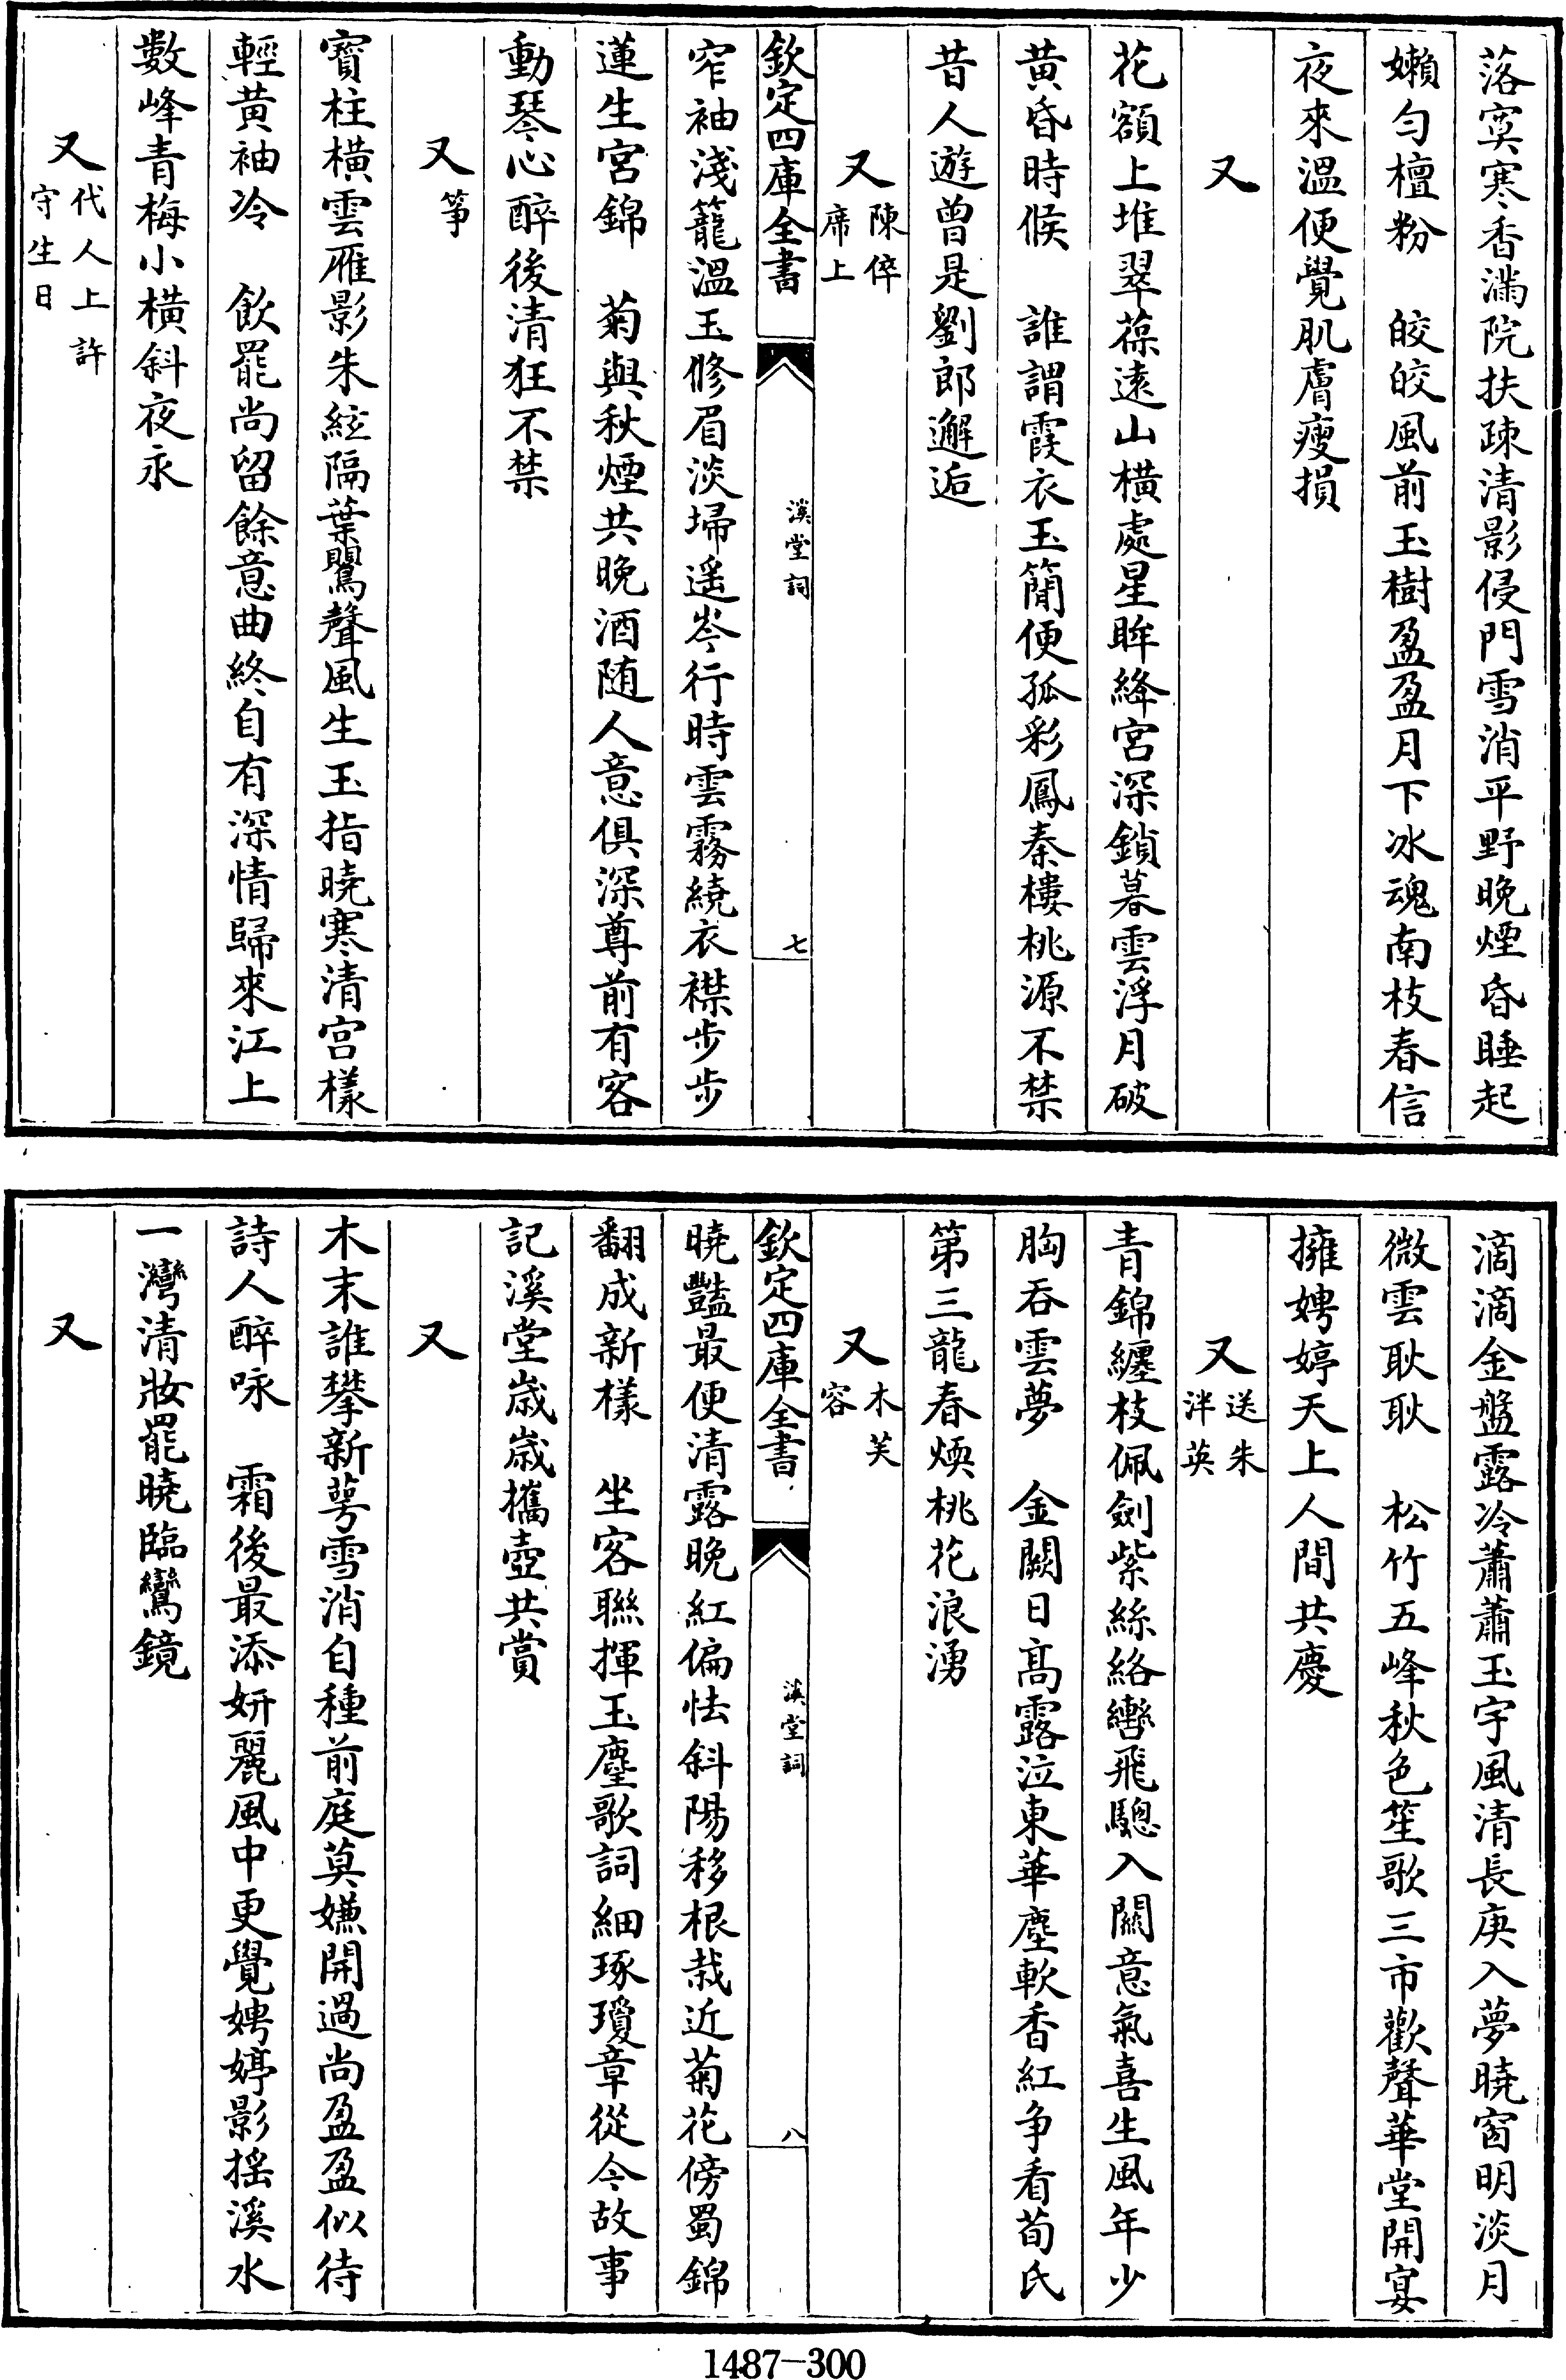 落寞寒香滿院扶疎清影侵門雪消平野晚煙昏睡起
嬾勻檀粉　皎皎風前玉樹盈盈月下冰魂南枝春信
夜來溫便覺肌膚瘦損
又
花額上堆翠葆遠山橫處星眸絳宮深鎖暮雲浮月破
黃昏時候　誰謂霞衣玉簡便孤彩鳳秦樓桃源不禁
昔人遊曾是劉郎邂逅
又陳倅席上
欽定四庫全書
溪堂詞
七
窄袖淺籠溫玉修眉淡埽遥岑行時雲霧繞衣襟步步
蓮生宮錦　菊與秋煙共晚酒随人意俱深尊前有客
動琴心醉後清狂不禁
又箏
寶柱橫雲雁影朱絃隔葉鸎聲風生玉指曉寒清宫樣
輕黃袖冷　飲罷尚留餘意曲終自有深情歸來江上
數峰青梅小橫斜夜永
又代人上許守生日
滴滴金盤露冷蕭蕭玉宇風清長庚入夢曉窗明淡月
微雲耿耿　松竹五峰秋色笙歌三市歡聲華堂開宴
擁娉婷天上人間共慶
又送朱泮英
青錦纏枝佩劍紫絲絡轡飛驄入關意氣喜生風年少
胸吞雲夢　金闕日髙露泣東華塵軟香紅争看荀氏
第三龍春煥桃花浪湧
又木芙容
欽定四庫全書
溪堂詞
八
曉豔最便清露晚紅偏怯斜陽移根栽近菊花傍蜀錦
翻成新樣　坐客聯揮玉麈歌詞細琢瓊章從今故事
記溪堂歲歲攜壺共賞
又
木末誰攀新萼雪消自種前庭莫嫌開過尚盈盈似待
詩人醉咏　霜後最添妍麗風中更覺娉婷影揺溪水
一灣清妝罷曉臨鸞鏡
又
1487—300